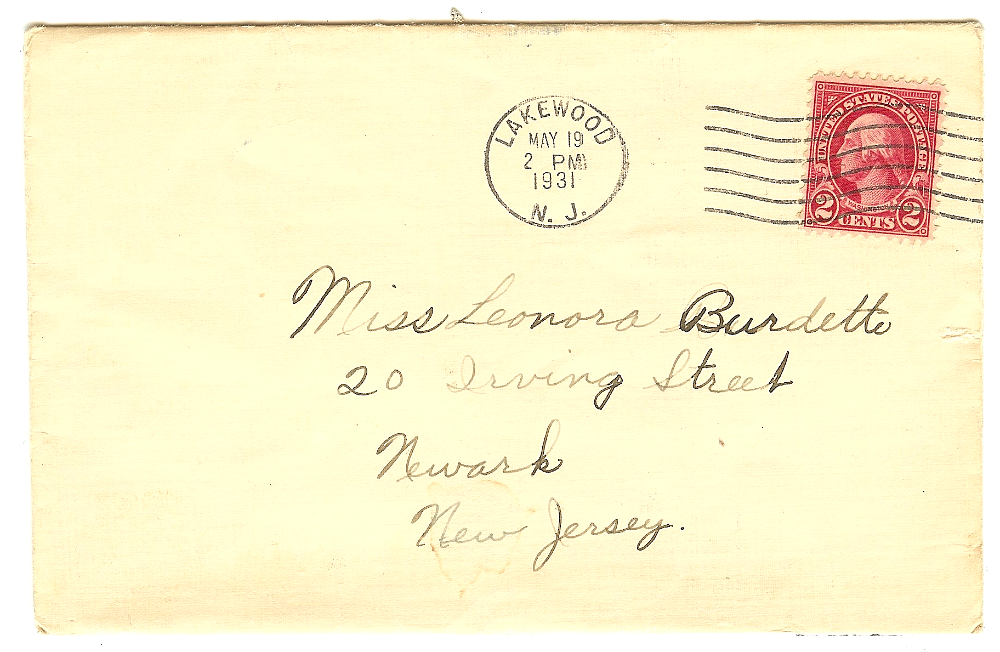 LAKEWOOD
MAY 19
2 PM
1931
N. J.
UNITED STATES POSTAGE
WASHINGTON
2 CENTS 2
Miss Leonora Burdette
20 Irving Street
Newark
New Jersey.